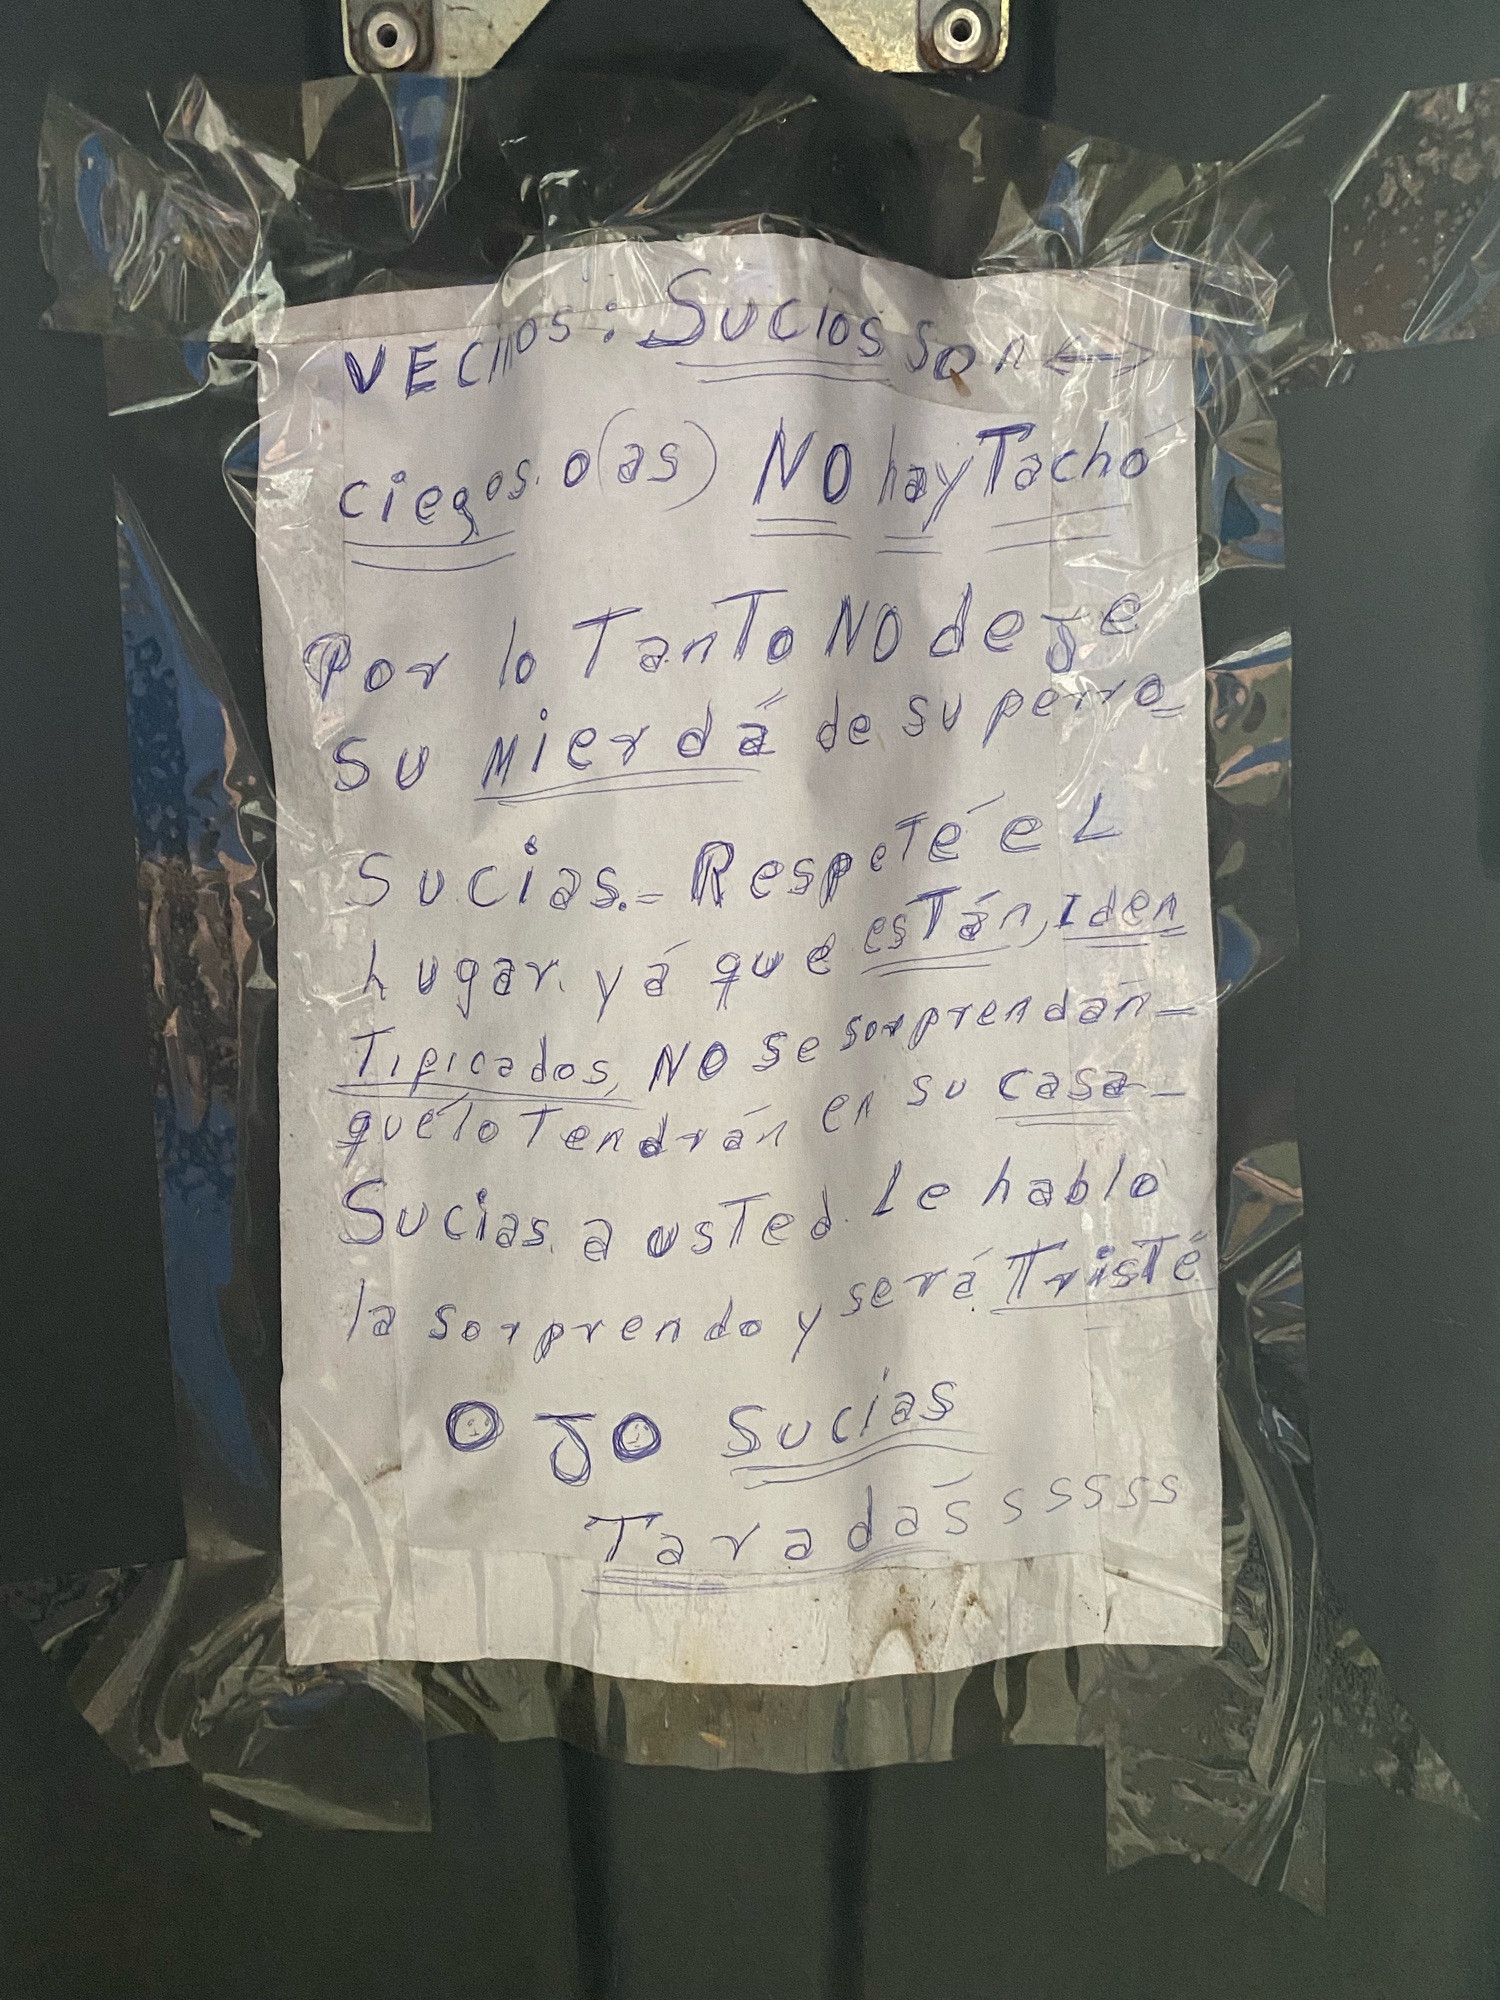 VECINOS: SUCIOS SON <->
ciegos. o(as) NO hay Tachó
Por lo TanTo NO deje
SU MierdÁ de su perro_
SUcias.= RespeTé el
lugar. yá que esTán, Iden
Tificados, NO se sorprendán=
qué lo Tendrán en su casa_
Sucias. a usTed. Le hablo
la sorprendo y será TrisTé
OJO Sucias
Taradás sssss